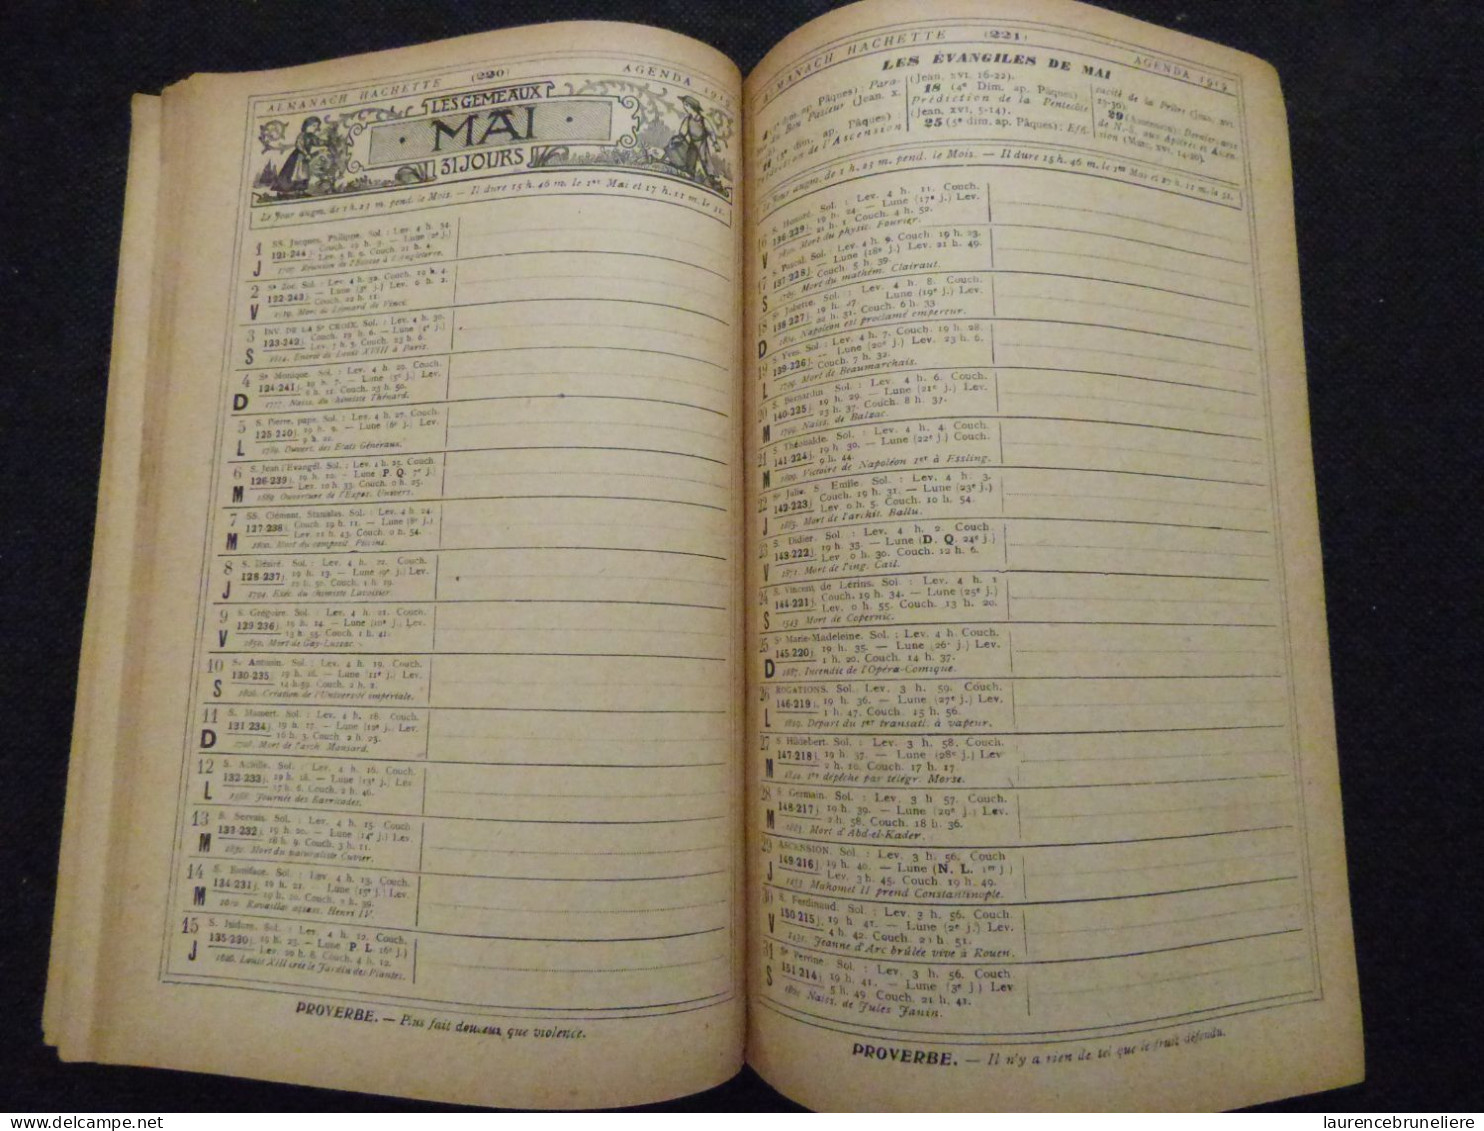 ALMANACH HACHETTE (220) AGENDA 1919
LES GEMEAUX
MAI
31 JOURS
Le Jour augm. de 1 h. 23 m. pend. le Mois. — Il dure 15 h. 46 m. le 1er Mai et 17 h. 11 m. le 31.
1 SS. Jacques, Philippe. Sol. : Lev. 4 h. 34.
121-244 j. Couch. 19 h. — Lune (2e j.)
J Lev. 5 h. 9. Couch. 21 h.
2 Se Zoé. Sol. : Lev. 4 h. 32. Couch. 19 h. 4.
122-243 j. — Lune (3e j.) Lev. 6 h.
V Couch. 22 h. 11.
1519. Mort de Léonard de Vinci.
3 INV. DE LA Se CROIX. Sol. : Lev. 4 h. 30.
123-242 j. Couch. 19 h. 6. — Lune (4e j.)
S Lev. 7 h. 5. Couch. 23 h. 6.
1814. Entrée de Louis XVIII à Paris.
4 Se Monique. Sol. : Lev. 4 h. 29. Couch.
124-241 j. 19 h. 7. — Lune (5e j.) Lev.
D 8 h. 12. Couch. 23 h. 50.
1777. Naiss. du chimiste Thénard.
5 S. Pierre, pape. Sol. : Lev. 4 h. 27. Couch.
125-240 j. 19 h. 9. — Lune (6e j.) Lev.
L 9 h. 22.
1789. Ouvert. des Etats Généraux.
6 S. Jean l'Evangél. Sol. : Lev. 4 h. 25. Couch.
126-239 j. 19 h. 10. — Lune (P. Q. 7e j.)
M Lev. 10 h. 33. Couch. 0 h. 25.
1889. Ouverture de l'Expos. Univers.
7 SS. Clément, Stanislas. Sol. : Lev. 4 h. 24.
127-238 j. Couch. 19 h. 11. — Lune (8e j.)
M Lev. 11 h. 43. Couch. 0 h. 54.
1800. Mort du composit. Piccini.
8 S. Désiré. Sol. : Lev. 4 h. 22. Couch.
128-237 j. 19 h. 13. — Lune (9e j.) Lev.
J Couch. 1 h. 19.
1794. Exéc. du chimiste Lavoisier.
9 S. Grégoire. Sol. : Lev. 4 h. 21. Couch.
129-236 j. 19 h. 14. — Lune (10e j.) Lev.
V 13 h. 55. Couch. 1 h. 41.
1850. Mort de Gay-Lussac.
10 S. Antonin. Sol. : Lev. 4 h. 19. Couch.
130-235 j. 19 h. 16. — Lune (11e j.) Lev.
S 14 h. 59. Couch. 2 h. 2.
1806. Création de l'Université impériale.
11 S. Mamert. Sol. : Lev. 4 h. 18. Couch.
131-234 j. 19 h. 17. — Lune (12e j.) Lev.
D 16 h. 3. Couch. 2 h. 23.
1708. Mort de l'arch. Mansard.
12 S. Achille. Sol. : Lev. 4 h. 16. Couch.
132-233 j. 19 h. 18. — Lune (13e j.) Lev.
L 17 h. 6. Couch. 2 h. 46.
1588. Journée des Barricades.
13 S. Servais. Sol. : Lev. 4 h. 15. Couch.
133-232 j. 19 h. 20. — Lune (14e j.) Lev.
M 18 h. 9. Couch. 3 h. 11.
1832. Mort du naturaliste Cuvier.
14 S. Boniface. Sol. : Lev. 4 h. 13. Couch.
134-231 j. 19 h. 21. — Lune (15e j.) Lev.
M Couch. 3 h. 39.
1610. Ravaillac assass. Henri IV.
15 S. Isidore. Sol. : Lev. 4 h. 12. Couch.
135-230 j. 19 h. 23. — Lune (P. L. 16e j.)
J Lev. 20 h. 8. Couch. 4 h. 12.
1626. Louis XIII crée le Jardin des Plantes.
PROVERBE. — Plus fait douceur que violence.
ALMANACH HACHETTE (221) AGENDA 1919
LES ÉVANGILES DE MAI
4 (2e dim. ap. Pâques) : Parabole du Bon Pasteur (Jean. X.
11 (3e dim. ap. Pâques) : Prédiction de l'Ascension
(Jean, XVI. 16-22).
18 (4e Dim. ap. Pâques)
Prédiction de la Pentecôte
(Jean, XVI, 5-14).
25 (5e dim. ap. Pâques) : Effi-
cacité de la Prière (Jean, XVI.
23-30).
29 (Ascension) Dernier
de N.-S. aux Apôtres et Ascen-
sion (Marc, XVI. 14-20).
Le Jour augm. de 1 h. 23 m. pend. le Mois. — Il dure 15 h. 46 m. le 1er Mai et 17 h. 11 m. le 31.
16 S. Honoré. Sol. : Lev. 4 h. 11. Couch.
136-229 j. 19 h. 24. — Lune (17e j.) Lev.
V 21 h. 1. Couch. 4 h. 52.
1830. Mort du physic. Fourier.
17 S. Pascal. Sol. : Lev. 4 h. 9. Couch. 19 h. 23.
137-228 j. — Lune (18e j.) Lev. 21 h. 49.
S Couch. 5 h. 39.
1765. Mort du mathém. Clairaut.
18 Se Juliette. Sol. : Lev. 4 h. 8. Couch.
138-227 j. 19 h. 27. Lune (19e j.) Lev.
D 22 h. 31. Couch. 6 h. 33
1804. Napoléon est proclamé empereur.
19 S. Yves. Sol. : Lev. 4 h. 7. Couch. 19 h. 28.
139-226 j. — Lune (20e j.) Lev. 23 h. 6.
L Couch. 7 h. 32.
1799. Mort de Beaumarchais.
20 S. Bernardin. Sol. : Lev. 4 h. 6. Couch.
140-225 j. 19 h. 29. — Lune (21e j.) Lev.
M 23 h. 37. Couch. 8 h. 37.
1799. Naiss. de Balzac.
21 S. Théobalde. Sol. : Lev. 4 h. 4. Couch.
141-224 j. 19 h. 30. — Lune (22e j.) Couch.
M 9 h. 44.
1809. Victoire de Napoléon 1er à Essling.
22 Se Julie. S. Emile. Sol. : Lev. 4 h. 3.
142-223 j. Couch. 19 h. 31. — Lune (23e j.)
J Lev. 0 h. 5. Couch. 10 h. 54.
1885. Mort de l'archit. Ballu.
23 S. Didier. Sol. : Lev. 4 h. 2. Couch.
143-222 j. 19 h. 33. — Lune (D. Q. 24e j.)
V Lev. 0 h. 30. Couch. 12 h. 6.
1871. Mort de l'ing. Cail.
24 S. Vincent de Lérins. Sol. : Lev. 4 h. 1
144-221 j. Couch. 19 h. 34. — Lune (25e j.)
S Lev. 0 h. 55. Couch. 13 h. 20.
1543 Mort de Copernic.
25 Se Marie-Madeleine. Sol. : Lev. 4 h. Couch.
145-220 j. 19 h. 35. — Lune (26e j.) Lev.
D 1 h. 20. Couch. 14 h. 37.
1887. Incendie de l'Opéra-Comique.
26 ROGATIONS. Sol. Lev. 3 h. 59. Couch.
146-219 j. 19 h. 36. — Lune (27e j.) Lev.
L 1 h. 47. Couch. 15 h. 56.
1819. Départ du 1er transatl. à vapeur.
27 S. Hildebert. Sol. : Lev. 3 h. 58. Couch.
147-218 j. 19 h. 37. — Lune (28e j.) Lev
M 2 h. 10. Couch. 17 h. 17
1844. 1re dépêche par télégr. Morse.
28 S. Germain. Sol. : Lev. 3 h 57. Couch.
148-217 j. 19 h. 39. — Lune (29e j.) Lev.
M 2 h. 58. Couch. 18 h. 36.
1883. Mort d'Abd-el-Kader.
29 ASCENSION. Sol. : Lev. 3 h. 56. Couch
149-216 j. 19 h. 40. — Lune (N. L. 1er j)
J Lev. 3 h. 45. Couch. 19 h. 49.
1453. Mahomet II prend Constantinople.
30 S. Ferdinand. Sol. : Lev. 3 h. 56. Couch.
150-215 j. 19 h. 41. — Lune (2e j.) Lev.
V 4 h. 42. Couch. 20 h. 51.
1431. Jeanne d'Arc brûlée vive à Rouen.
31 Se Perrine. Sol. : Lev. 3 h. 56. Couch.
151-214 j. 19 h. 41. — Lune (3e j.) Lev.
S 5 h. 49. Couch. 21 h. 42.
1804. Naiss. de Jules Janin.
PROVERBE. — Il n'y a rien de tel que le fruit défendu.
laurencebruneliere
delcampe.net